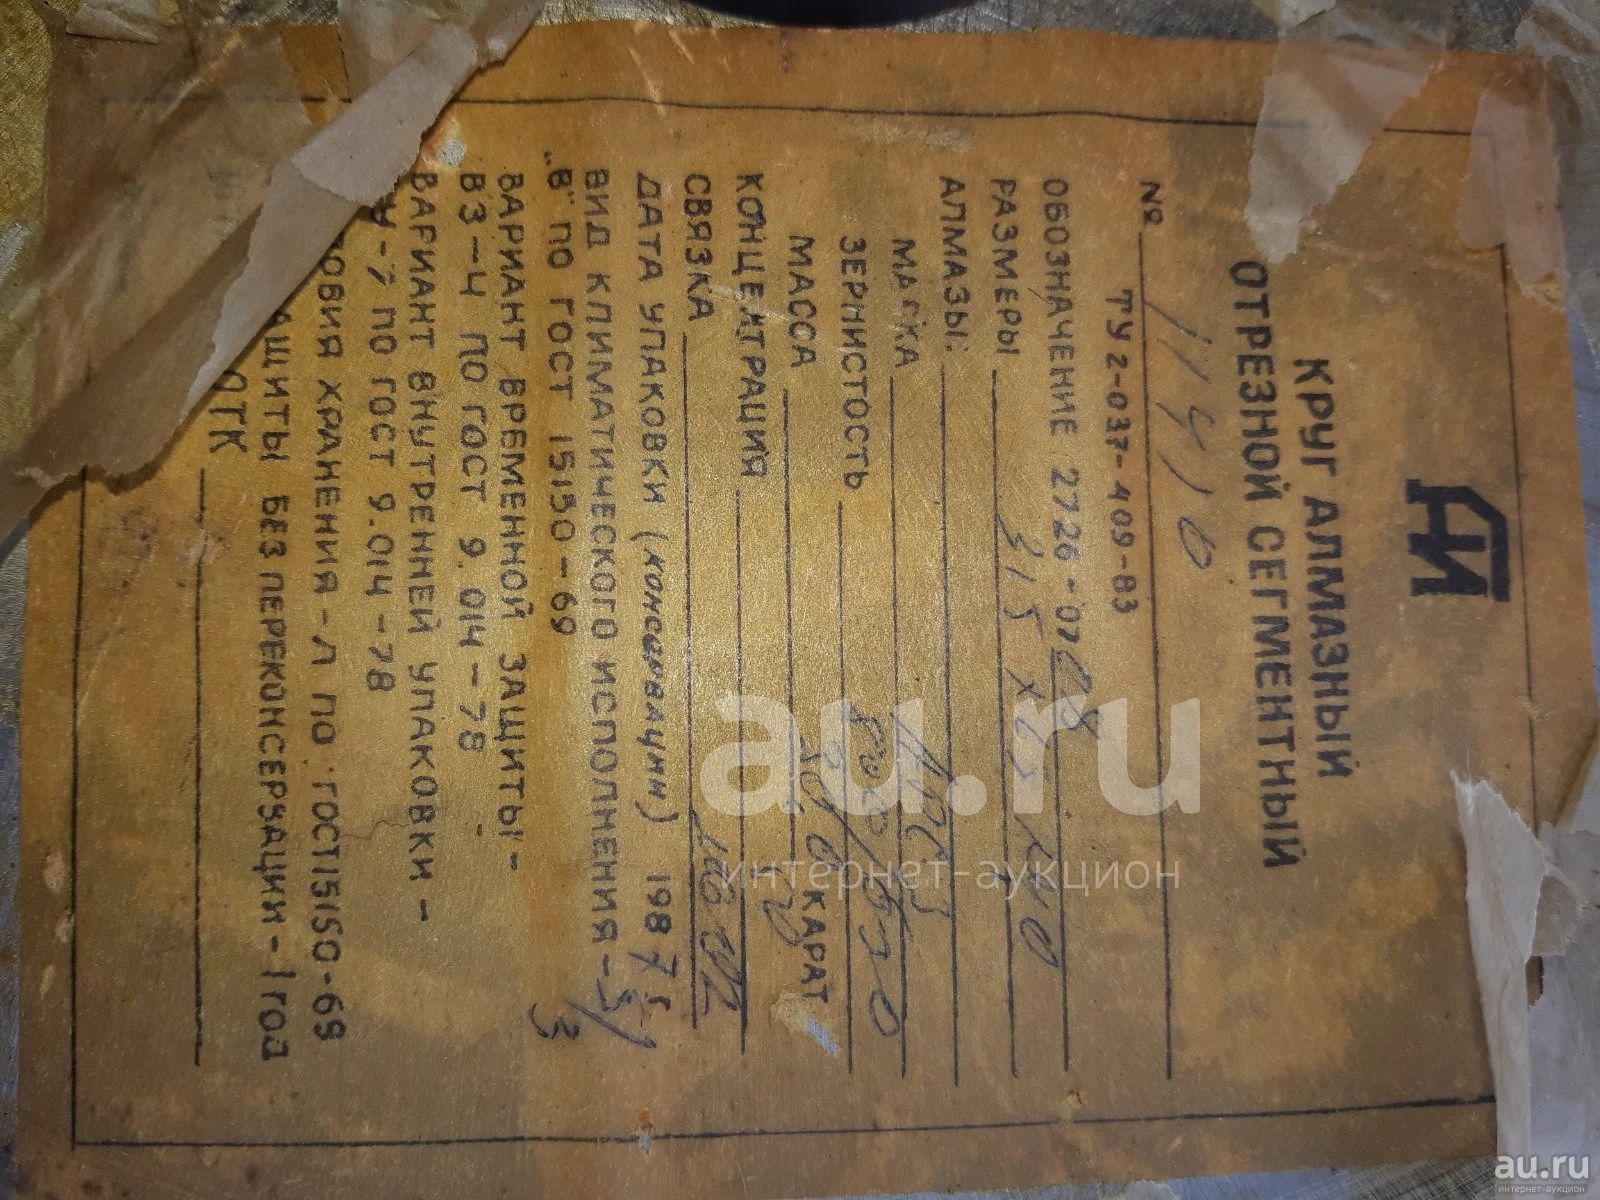 АИ
КРУГ АЛМАЗНЫЙ
ОТРЕЗНОЙ СЕГМЕНТНЫЙ
№ 11410
ТУ 2-037-409-83
ОБОЗНАЧЕНИЕ 2726-07
РАЗМЕРЫ 315 х
АЛМАЗЫ:
МАРКА
ЗЕРНИСТОСТЬ
МАССА КАРАТ
КОНЦЕНТРАЦИЯ
СВЯЗКА
ДАТА УПАКОВКИ (КОНСЕРВАЦИИ) 1987 г.
ВИД КЛИМАТИЧЕСКОГО ИСПОЛНЕНИЯ -
"В" ПО ГОСТ 15150-69
ВАРИАНТ ВРЕМЕННОЙ ЗАЩИТЫ -
ВЗ-4 ПО ГОСТ 9.014-78
ВАРИАНТ ВНУТРЕННЕЙ УПАКОВКИ -
У-7 ПО ГОСТ 9.014-78
ОВИЯ ХРАНЕНИЯ - Л ПО ГОСТ15150-69
АЩИТЫ БЕЗ ПЕРЕКОНСЕРВАЦИИ - 1 ГОД
ОТК
au.ru
интернет-аукцион
au.ru
интернет-аукцион